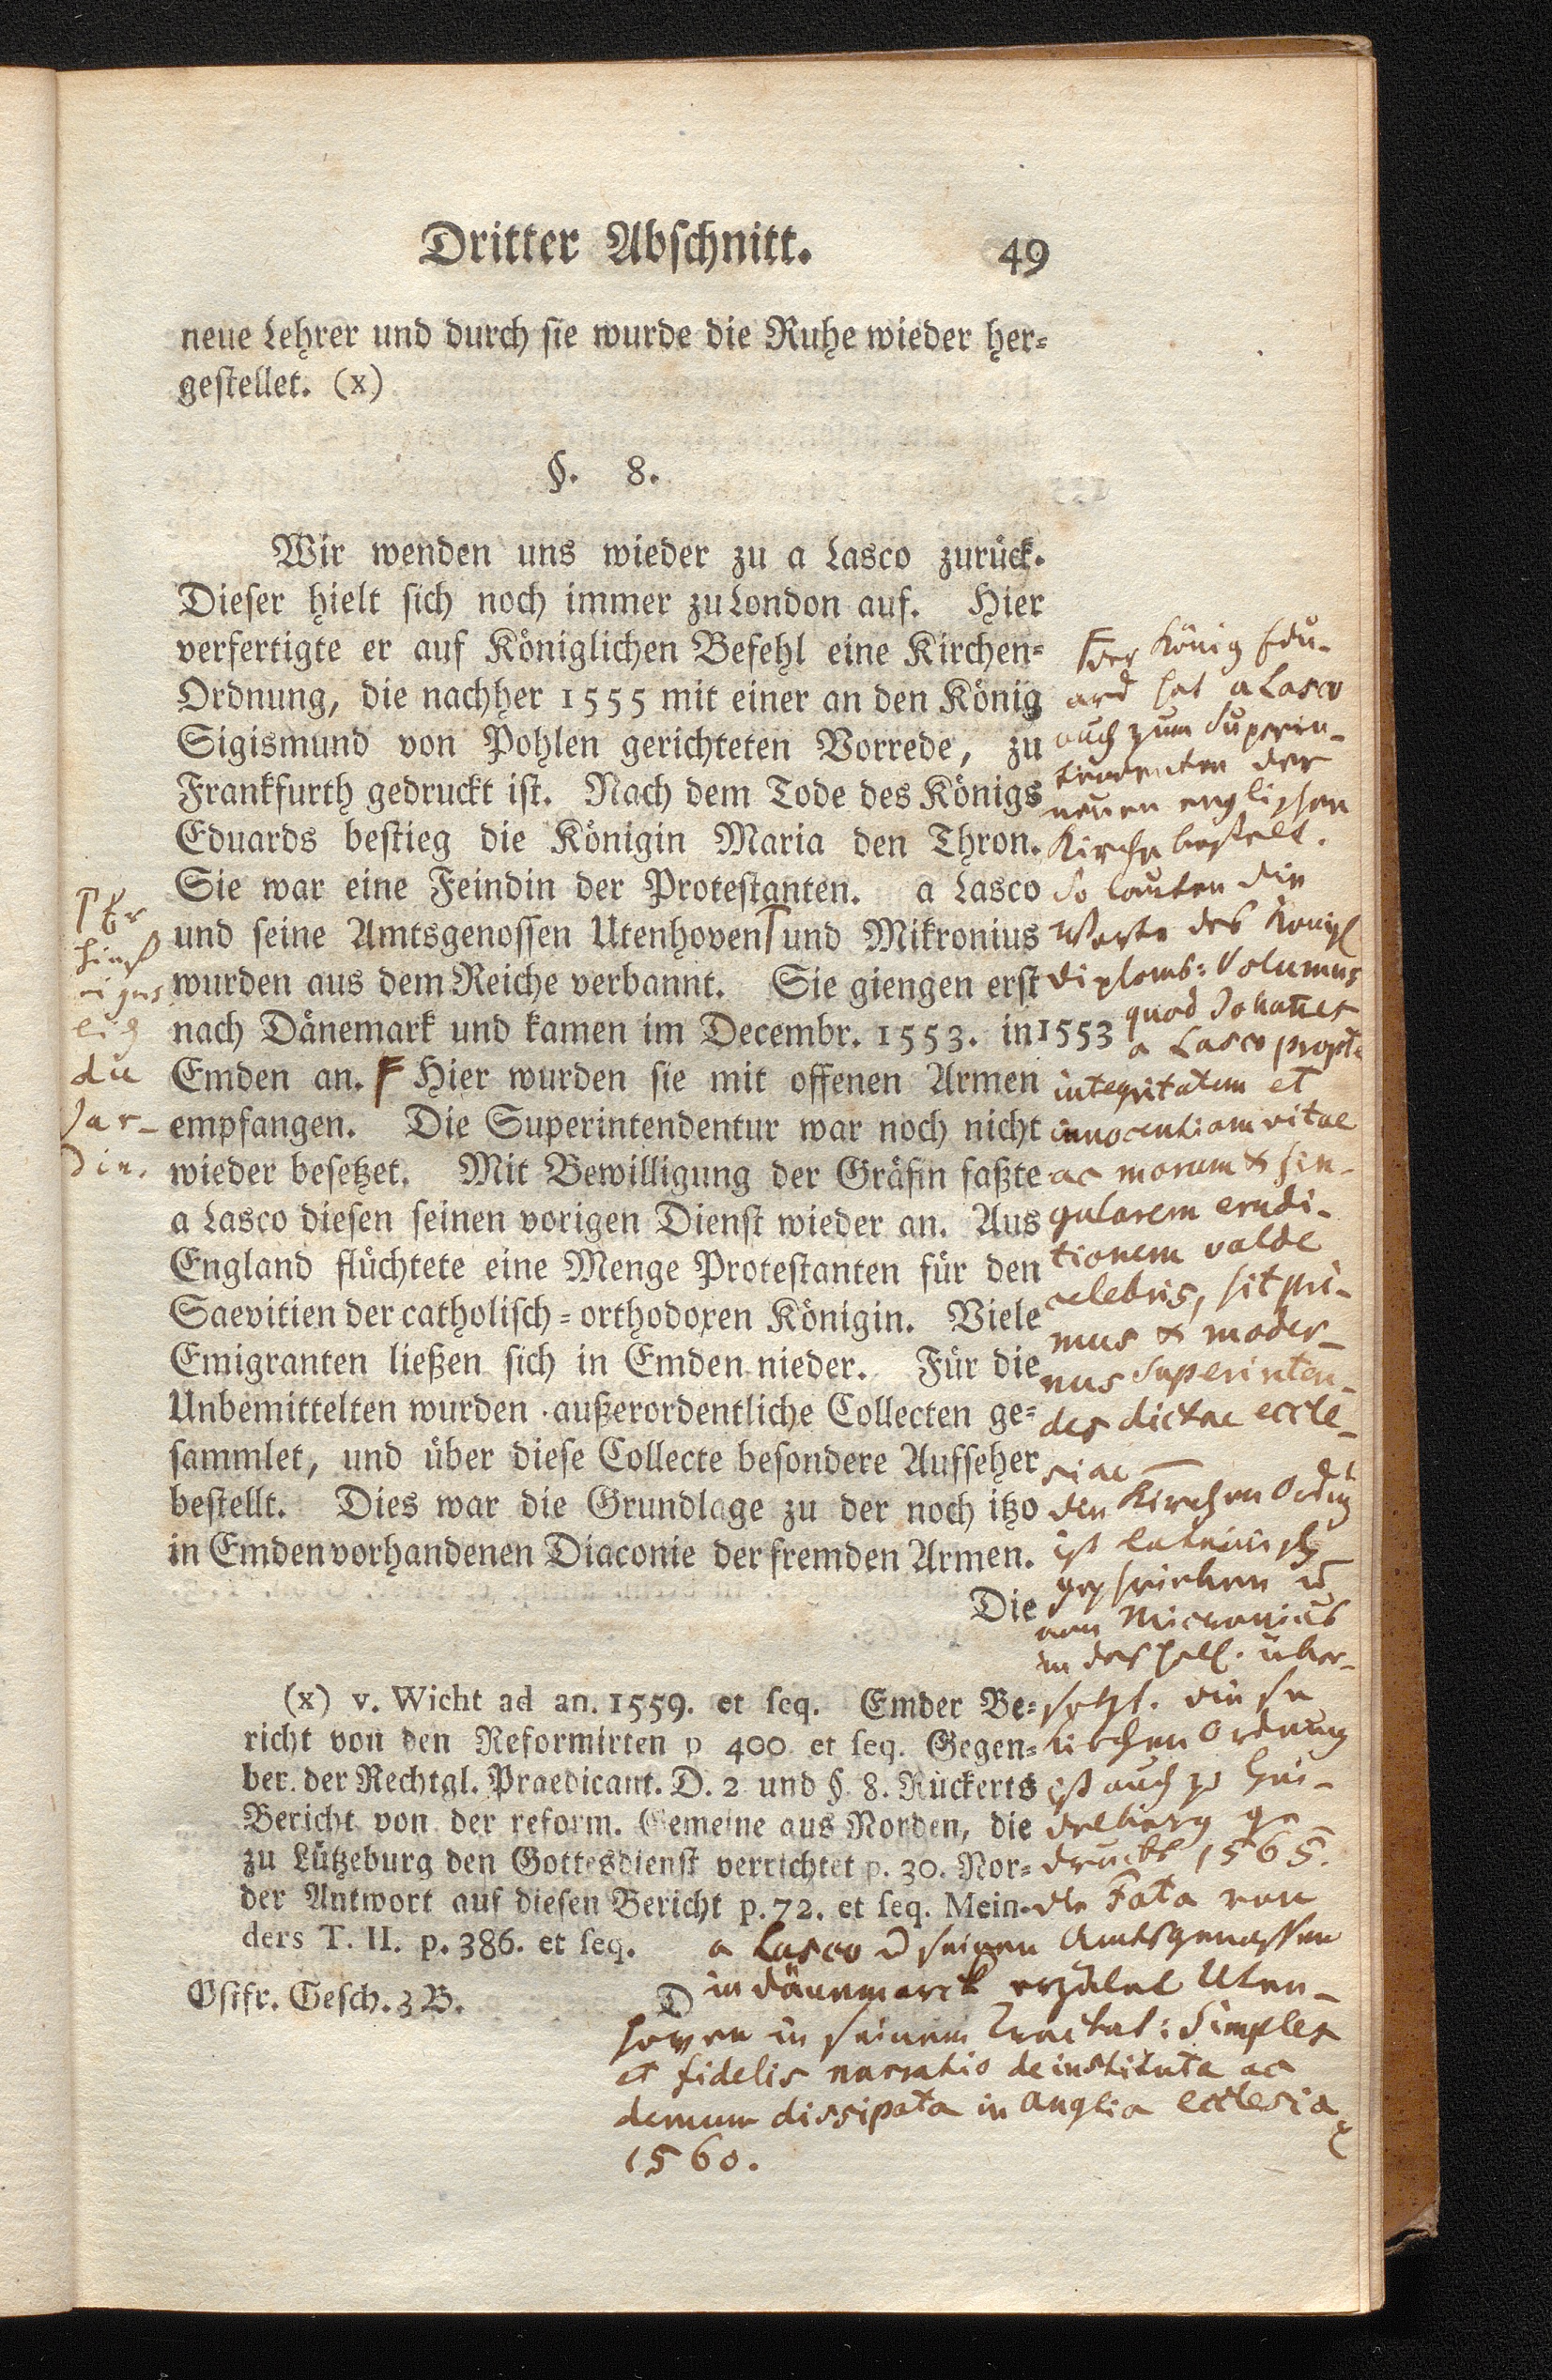 Dritter Abschnitt. 49
neue Lehrer und durch sie wurde die Ruhe wieder her=
gestellet. (x)
§. 8.
Wir wenden uns wieder zu a Lasco zurück.
Dieser hielt sich noch immer zu London auf. Hier
verfertigte er auf Königlichen Befehl eine Kirchen=
Ordnung, die nachher 1555 mit einer an den König
Sigismund von Pohlen gerichteten Vorrede, zu
Frankfurth gedruckt ist. Nach dem Tode des Königs
Eduards bestieg die Königin Maria den Thron.
Sie war eine Feindin der Protestanten. a Lasco
und seine Amtsgenossen Utenhoven und Mikronius
wurden aus dem Reiche verbannt. Sie giengen erst
nach Dänemark und kamen im Decembr. 1553. in 1553
Emden an. F Hier wurden sie mit offenen Armen
empfangen. Die Superintendentur war noch nicht
wieder besetzet. Mit Bewilligung der Gräfin faßte
a Lasco diesen seinen vorigen Dienst wieder an. Aus
England flüchtete eine Menge Protestanten für den
Saevitien der catholisch=orthodoxen Königin. Viele
Emigranten ließen sich in Emden nieder. Für die
Unbemittelten wurden außerordentliche Collecten ge=
sammlet, und über diese Collecte besondere Aufseher
bestellt. Dies war die Grundlage zu der noch itzo
in Emden vorhandenen Diaconie der fremden Armen.
Die
(x) v. Wicht ad an. 1559. et seq. Emder Be=
richt von den Reformirten p 400 et seq. Gegen=
ber. der Rechtgl. Praedicant. D. 2 und §. 8. Rückerts
Bericht von der reform. Gemeine aus Norden, die
zu Lützeburg den Gottesdienst verrichtet p. 30. Nor=
der Antwort auf diesen Bericht p. 72. et seq. Mein=
ders T. II. p. 386. et seq.
Ostfr. Gesch. 3 B. D
der König Edu-
ard hat a Lasco
auch zum Superin-
tendenten der
neuen englischen
Kirche bestelt.
So lauten die
Worte des Königl
diploms: Volumus
quod Johannes
a Lasco propter
integritatem et
innocentiam vitae
ac morum & sin-
gularem erudi-
tionem valde
celebris, sit pri-
mus & moder-
nus Superinten-
des dictae eccle-
siae
den Kirchen Ordng
ist lateinisch
geschrieben u
von Micronius
in das holl. über-
setzt. diese
Kirchen Ordnung
ist auch zu Hei-
delberg ge
druckt 1565.
die Fata von
a Lasco u seinen Amtsgenossen
in dännemarck erzälet Uten-
hoven in seinem Tractat: Simplex
et fidelis narratio de instituta ac
demum dissipata in Anglia ecclesia
1560.